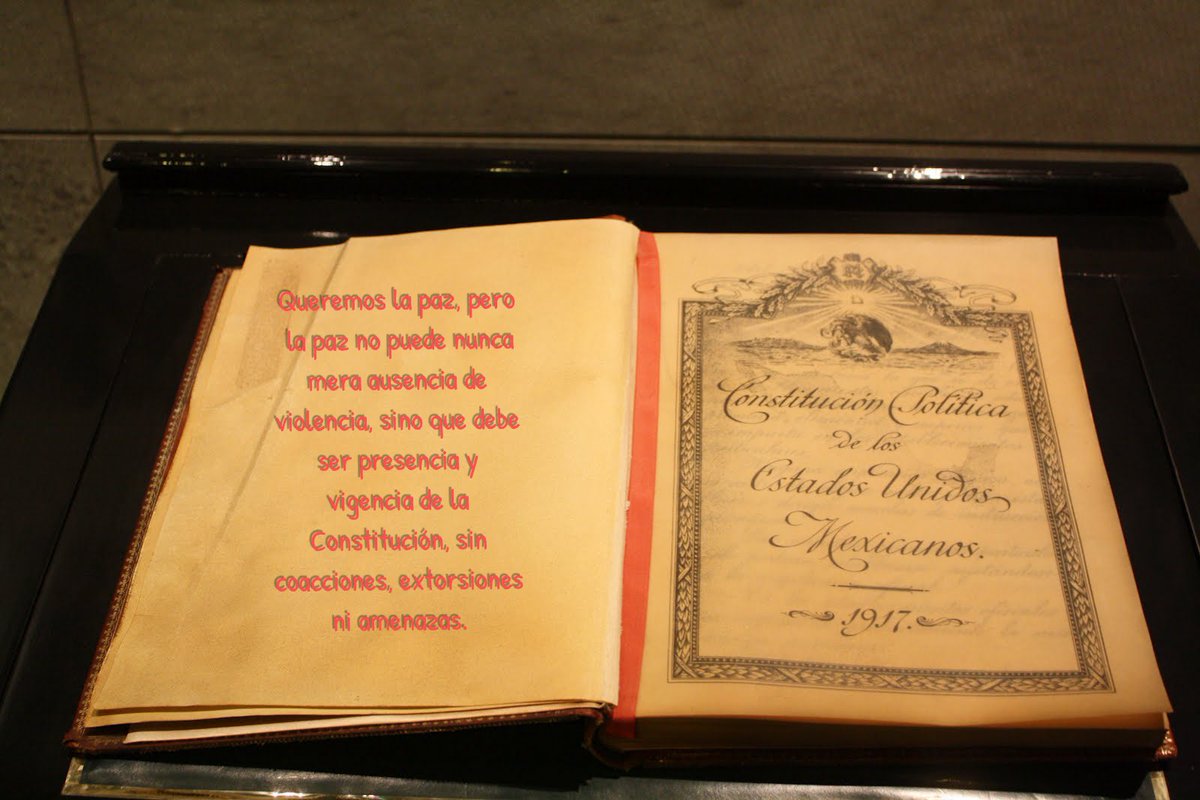 Queremos la paz, pero
la paz no puede nunca
mera ausencia de
violencia, sino que debe
ser presencia y
vigencia de la
Constitución, sin
coacciones, extorsiones
ni amenazas.
Constitución Política
de los
Estados Unidos
Mexicanos.
1917.